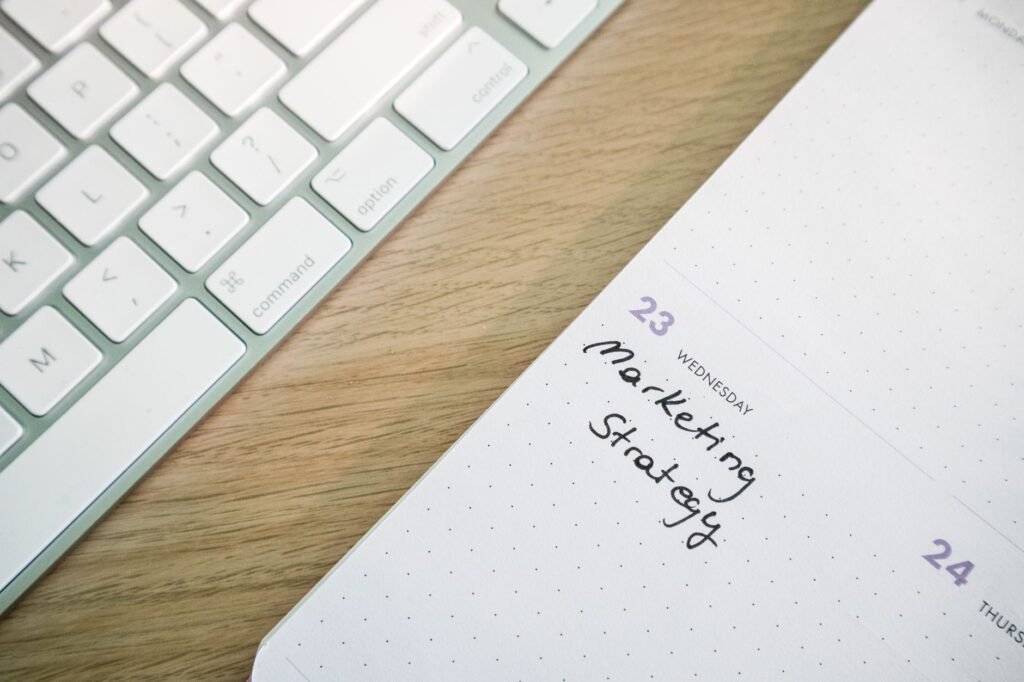 shift
control
option
command
P
O
L
K
M
:
;
"
'
?
/
>
.
<
,
23
WEDNESDAY
Marketing
Strategy
24